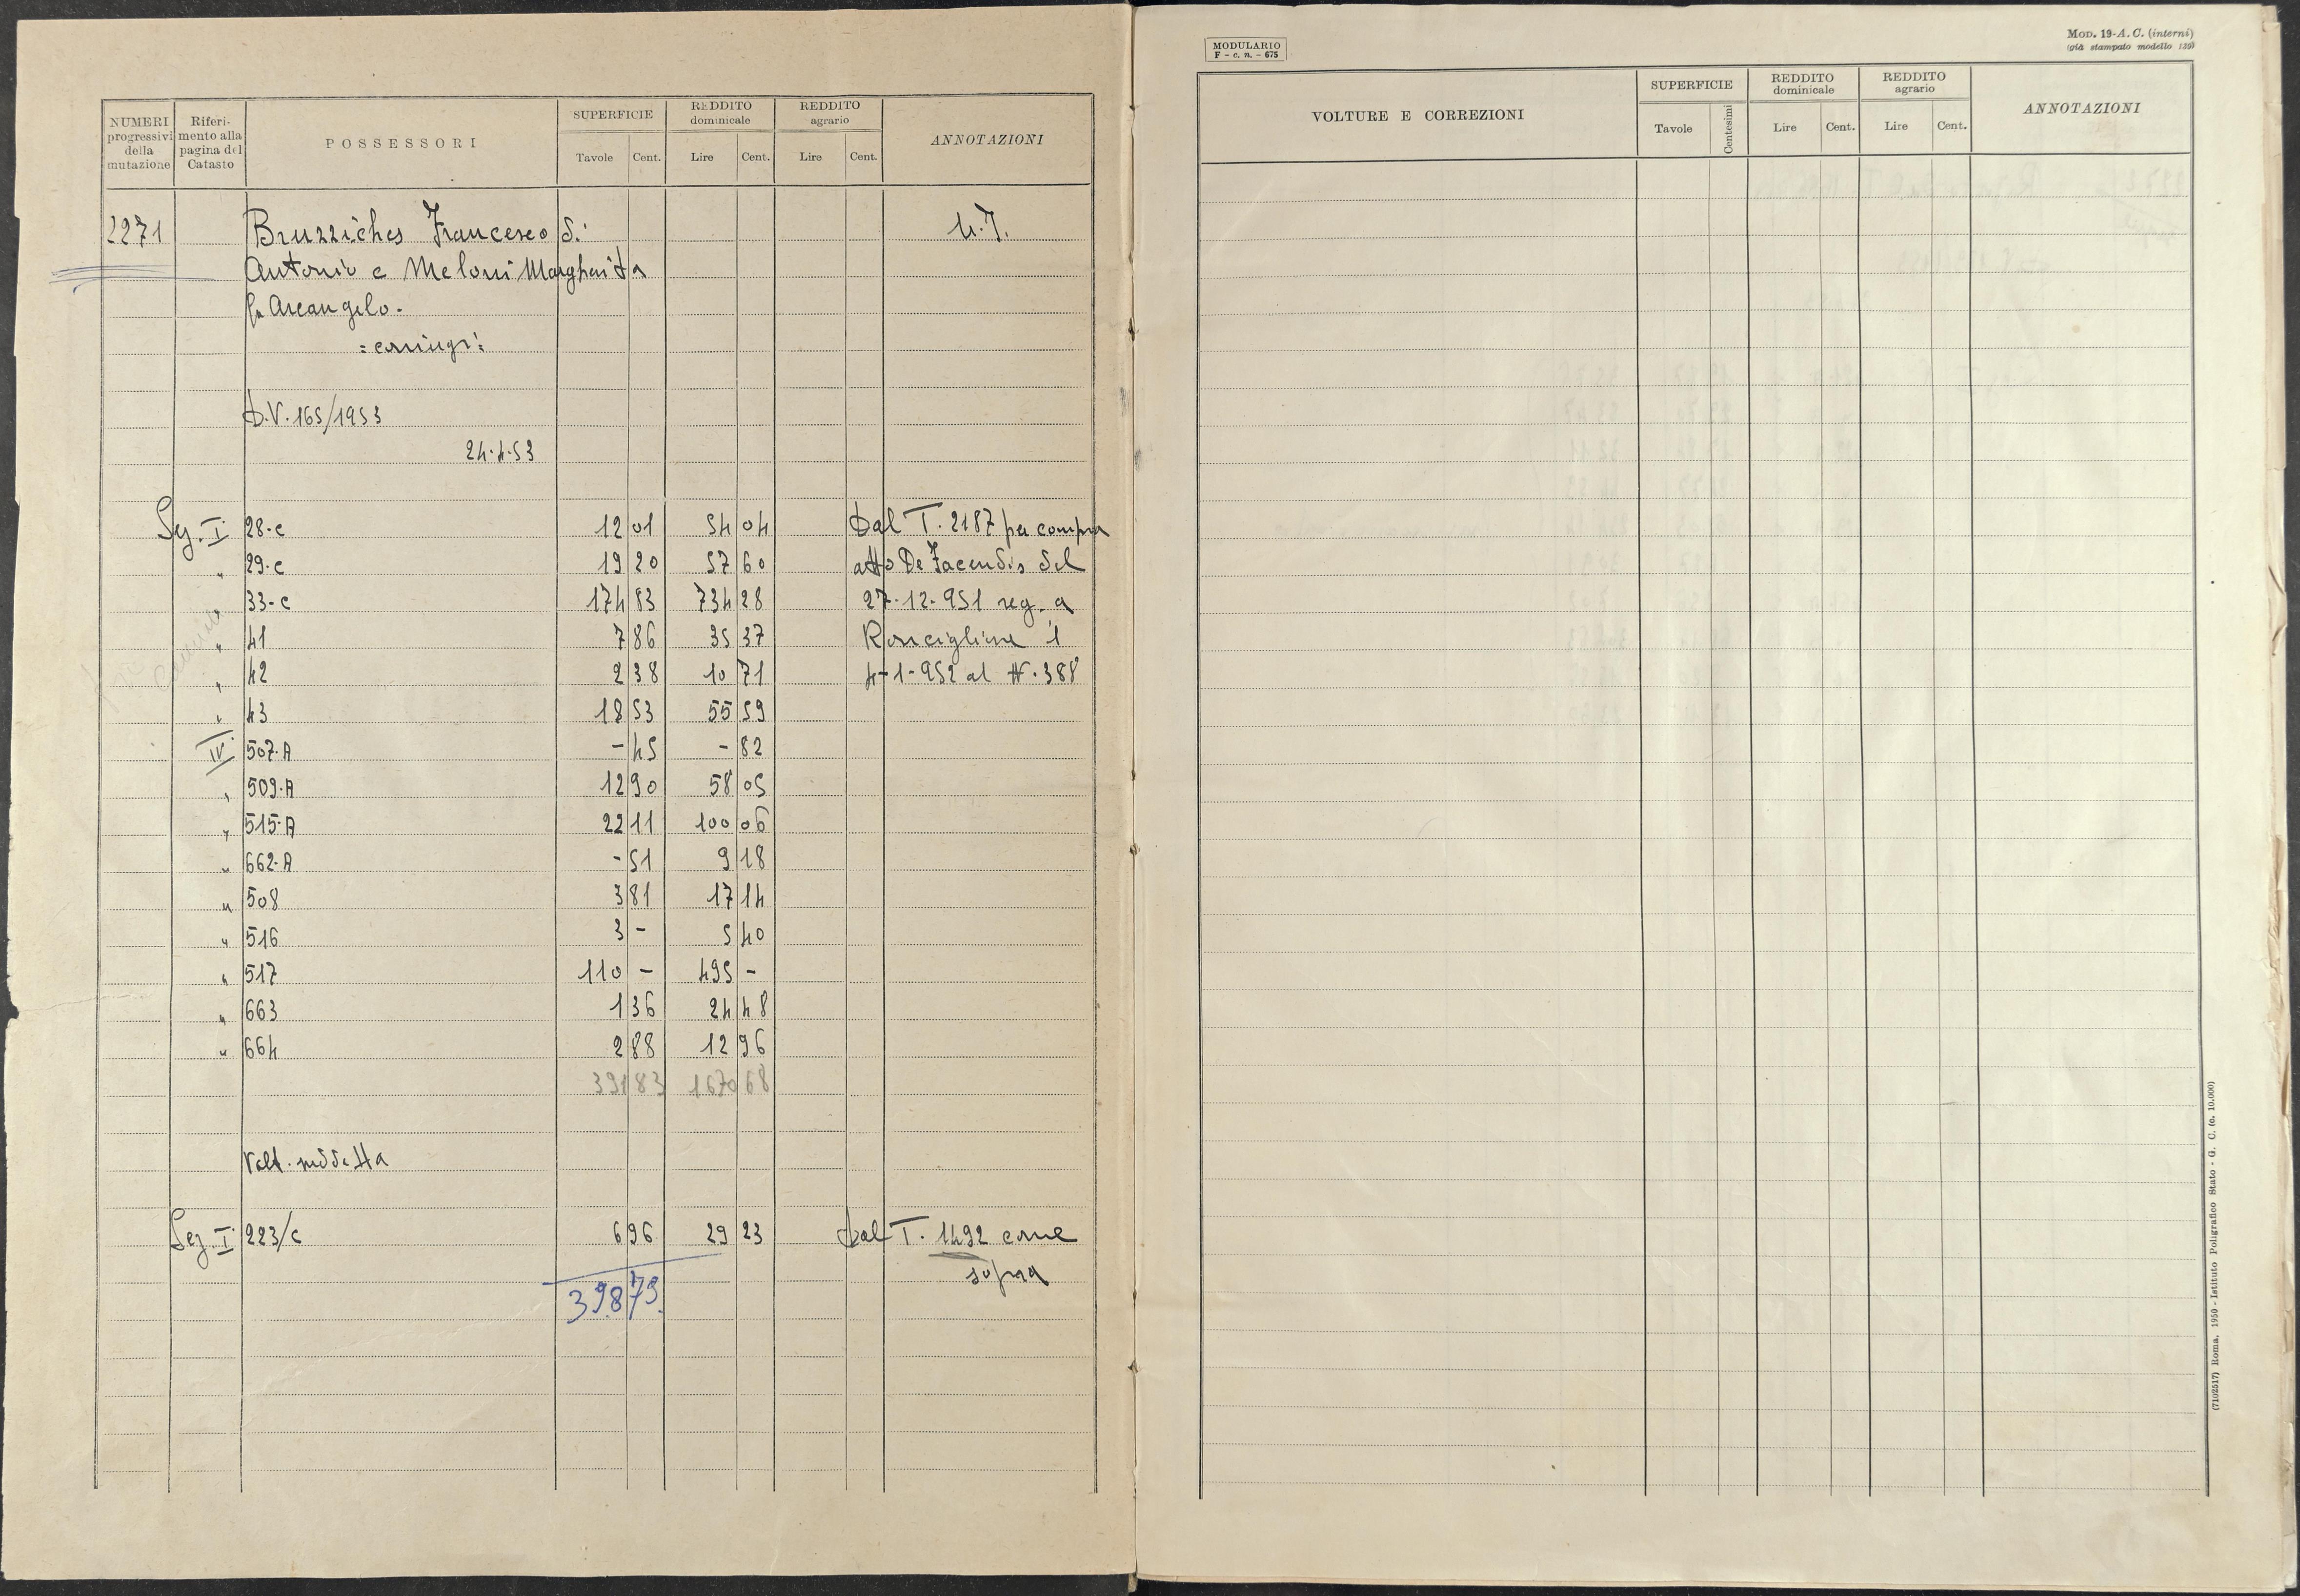 NUMERI progressivi della mutazione | Riferimento alla pagina del Catasto | POSSESSORI | SUPERFICIE Tavole Cent. | REDDITO dominicale Lire Cent. | REDDITO agrario Lire Cent. | ANNOTAZIONI
2271 Bruzziches Francesco di
Antonio e Meloni Margherita
fu Arcangelo.
=coniugi=
D.V. 165/1953
24.4.53
Sez. I 28-c 12 01 54 04 Dal T. 2187 per compra
" 29-c 19 20 57 60 atto De Facendis del
" 33-c 174 83 734 28 27-12-951 reg. a
" 41 7 86 35 37 Ronciglione il
" 42 2 38 10 71 4-1-952 al N. 388
" 43 18 53 55 59
IV 507-A - 45 - 82
" 509-A 12 90 58 05
" 515-A 22 11 100 06
" 662-A - 51 9 18
" 508 3 81 17 14
" 516 3 - 5 40
" 517 110 - 495 -
" 663 1 36 24 48
" 664 2 88 12 96
391 83 1670 68
Volt. suddetta
Sez. I 223/c 6 96 29 23 Dal T. 1492 come
sopra
398 79
MODULARIO
F - c. n. - 675
MOD. 19-A. C. (interni)
(già stampato modello 139)
VOLTURE E CORREZIONI | SUPERFICIE Tavole Centesimi | REDDITO dominicale Lire Cent. | REDDITO agrario Lire Cent. | ANNOTAZIONI
(7102517) Roma, 1950 - Istituto Poligrafico Stato - G. C. (c. 10.000)